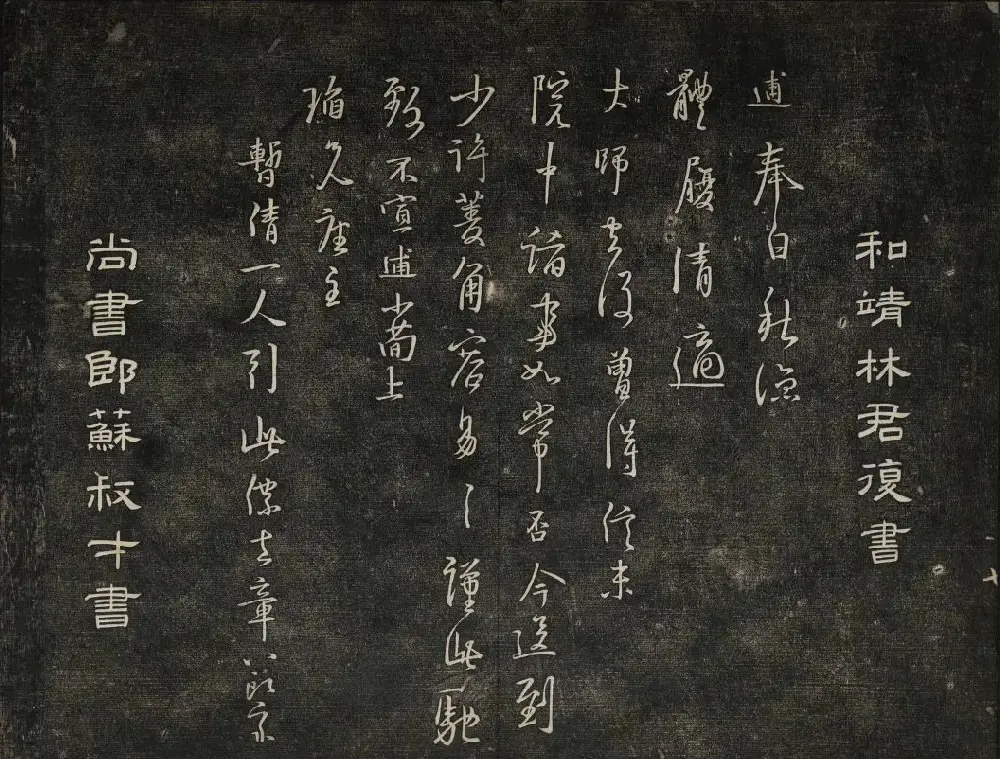 和靖林君復書
逋奉白秋涼
體履清適
大師去後曾得信未
院中諸事如常否今送到
少許菱角容易〻謹此馳
致不宣逋小簡上
座主
暫倩一人引此僕去章八郎家
尚書郎蘇叔才書